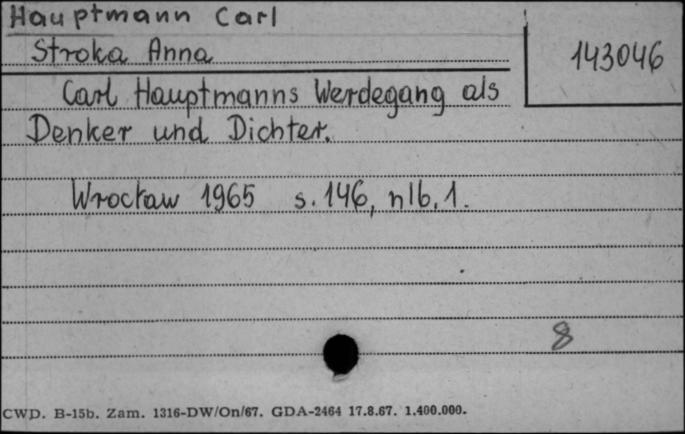 Hauptmann Carl
Stroka Anna
143046
Carl Hauptmanns Werdegang als
Denker und Dichter.
Wrocław 1965 s. 146, nlb. 1.
8
CWD. B-15b. Zam. 1316-DW/On/67. GDA-2464 17.8.67. 1.400.000.